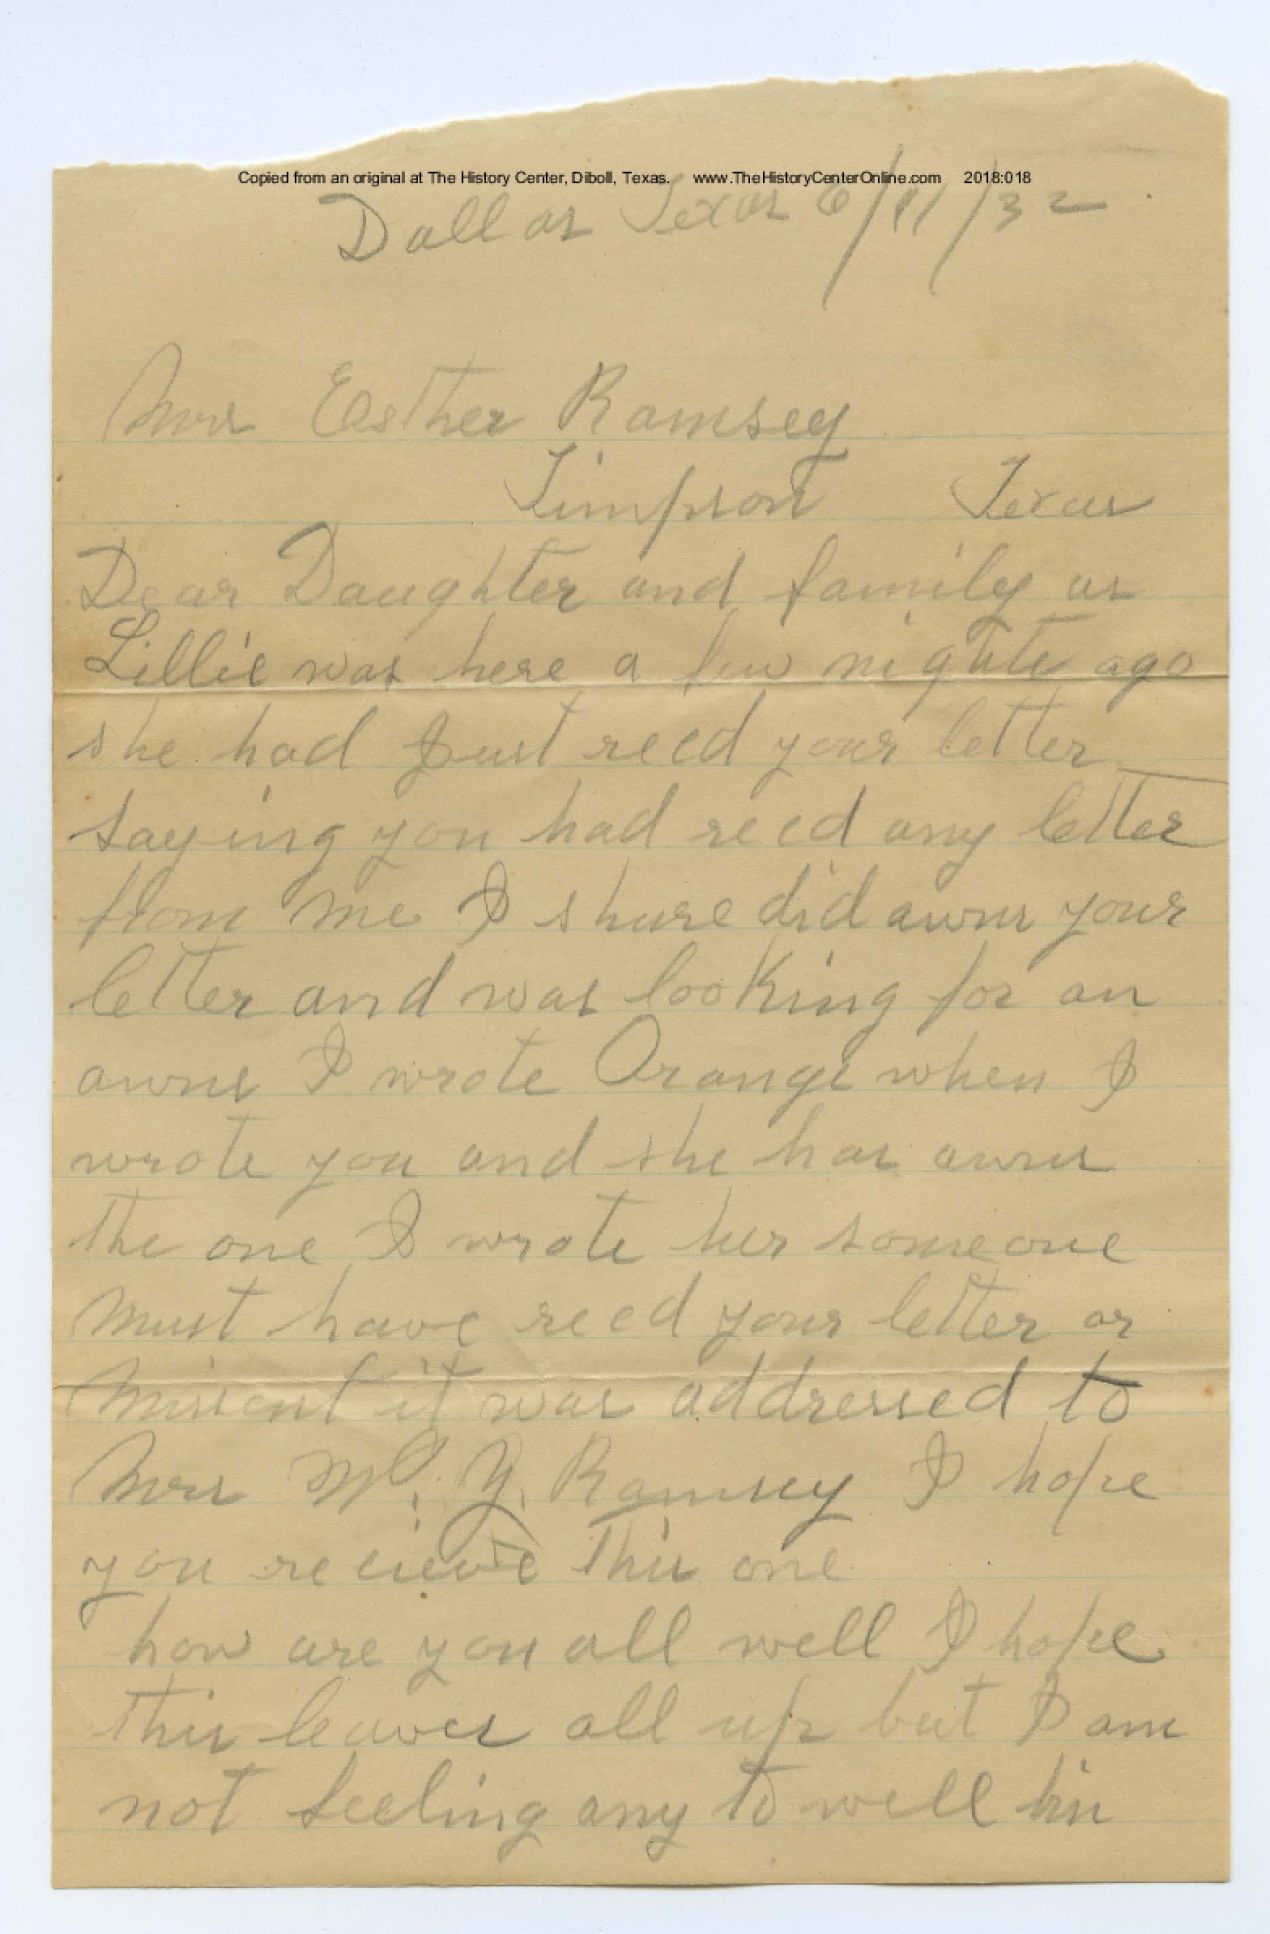 Copied from an original at The History Center, Diboll, Texas. www.TheHistoryCenterOnline.com 2018:018
Dallas Texas 6/11/32
Mrs Esther Ramsey
Timpson Texas
Dear Daughter and family as
Lillie was here a few nights ago
she had Just recd your letter
saying you had recd any letter
from me I shure did awns your
letter and was looking for an
awns I wrote Orange when I
wrote you and she has awns
the one I wrote her someone
must have recd your letter or
missent it was addressed to
Mrs W. Y. Ramsey I hope
you recieve this one
how are you all well I hope
this leaves all up but I am
not feeling any to well